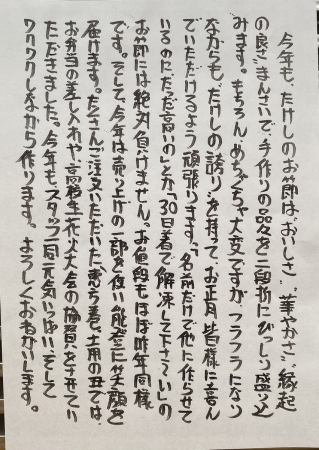 今年も、たけしのお節は〝おいしさ〟〝華やかさ〟〝縁起
の良さ〟まんさいで、手作りの品々を二段折にびっしり盛り込
みます。もちろん、めちゃくちゃ大変ですが、フラフラになり
ながらも、だけしの誇りを持って、お正月、皆様に喜ん
でいただけるよう頑張ります。「名前だけで他に作らせて
いるのにだった高いの」とか「30日着で解凍して下さ〜い」の
お節には絶対負けません。お値段もほぼ昨年同様
です。そして、今年は売り上げの一部を使い能登に笑顔を
届けます。たくさんご注文いただいた、恵方巻、土用の丑では、
お弁当の差し入れや、高校生花火大会の協賛をさせてい
ただきました。今年もスタッフ一同元気いっぱい、そして
ワクワクしながら作ります。よろしくおねがいします。